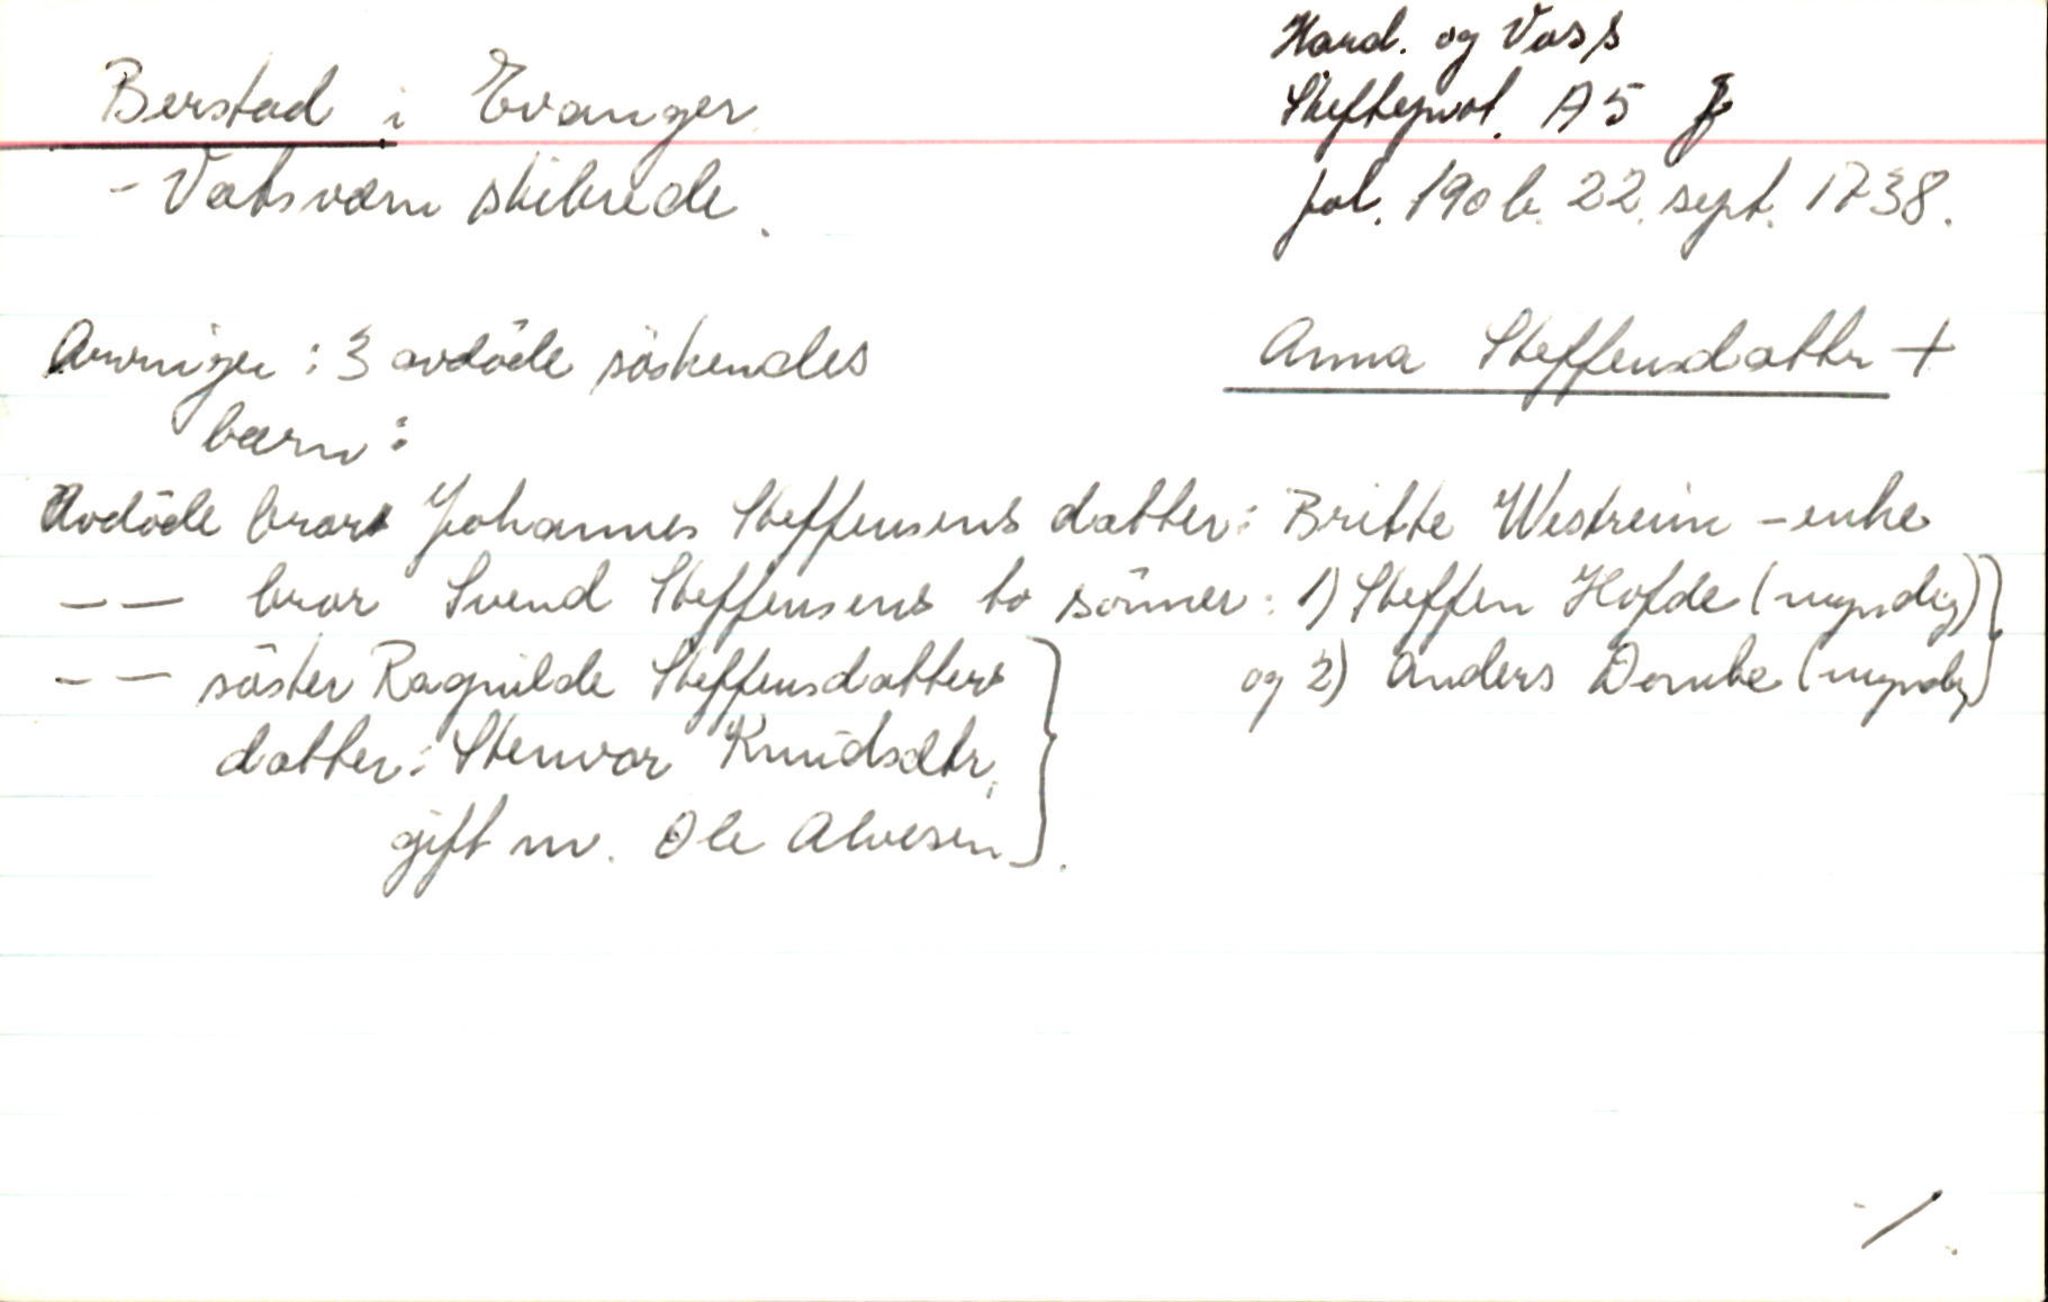 Berstad i Evanger
- Vatsværn skibrede.
Hard. og Voss
Skifteprot. A5
fol. 190 b. 22. sept. 1738.
Anna Steffensdatter +
Arvinger : 3 avdöde söskendes
barn :
Avdöde bror Johannes Steffensens datter : Britte Westreim - enke
— — bror Svend Steffensens to sönner : 1) Steffen Hofde (myndig)
og 2) Anders Dembe (myndig)
— — söster Ragnilde Steffensdatters
datter : Stenvor Knudsdtr,
gift m. Ole Alvesen.